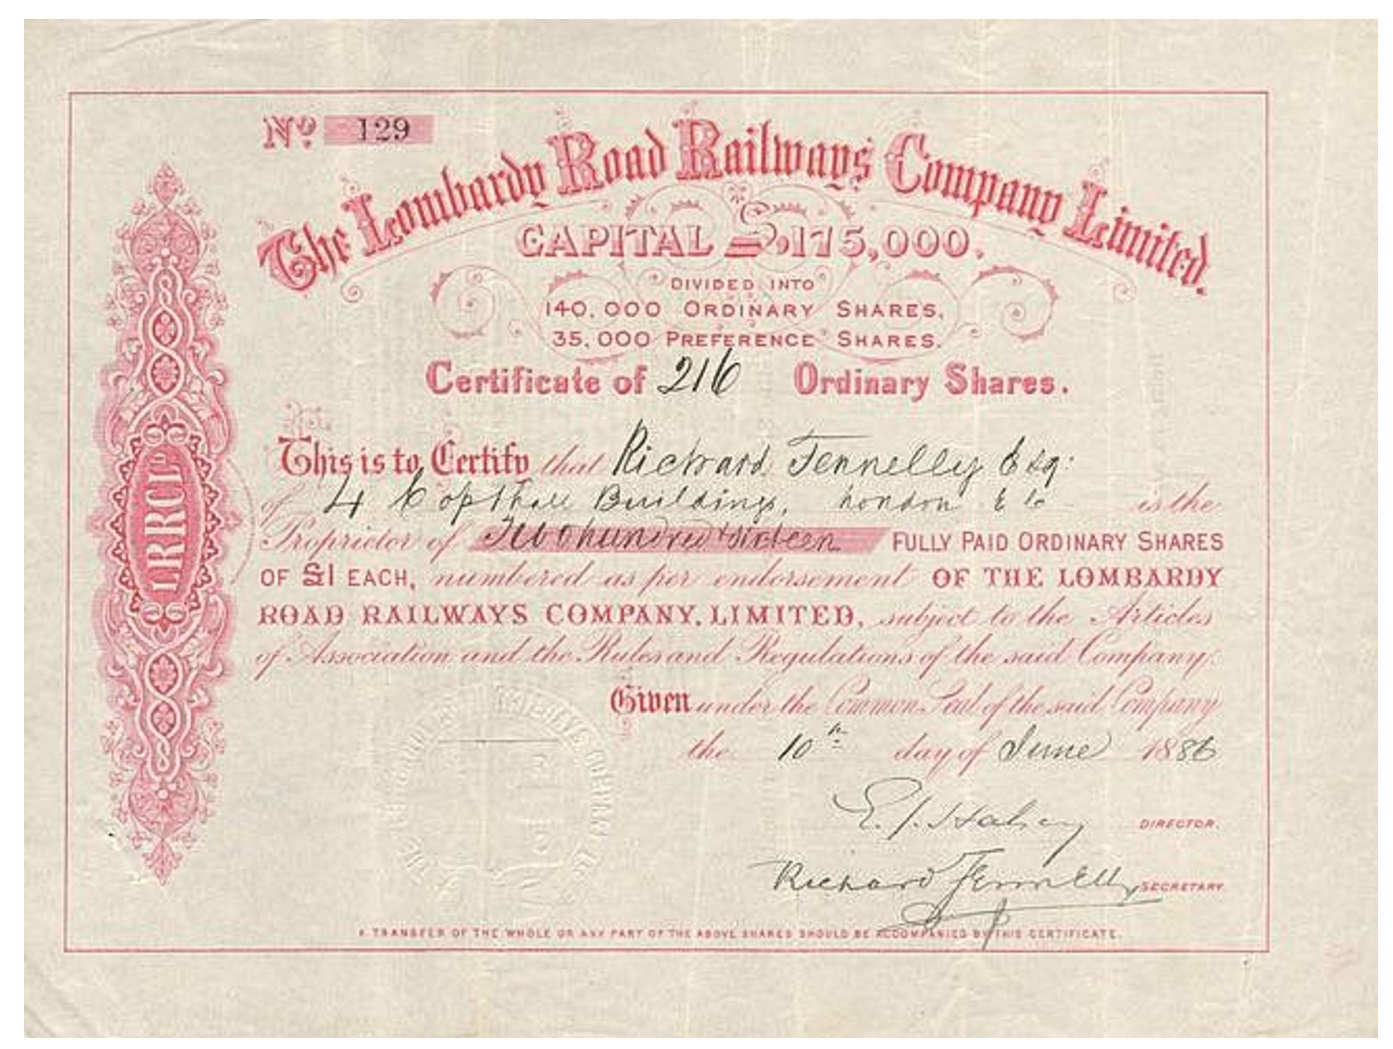 Nº 129
The Lombardy Road Railways Company Limited.
CAPITAL £175,000.
DIVIDED INTO
140,000 ORDINARY SHARES,
35,000 PREFERENCE SHARES.
Certificate of 216 Ordinary Shares.
This is to Certify that Richard Fennelly Esq:
of 4 Copthall Buildings, London E C is the
Proprietor of Two hundred & sixteen FULLY PAID ORDINARY SHARES
OF £1 EACH, numbered as per endorsement OF THE LOMBARDY
ROAD RAILWAYS COMPANY, LIMITED, subject to the Articles
of Association and the Rules and Regulations of the said Company.
Given under the Common Seal of the said Company
the 10th day of June 1886
E. J. Halsey DIRECTOR.
Richard Fennelly SECRETARY
A TRANSFER OF THE WHOLE OR ANY PART OF THE ABOVE SHARES SHOULD BE ACCOMPANIED BY THIS CERTIFICATE.
LRRCLD